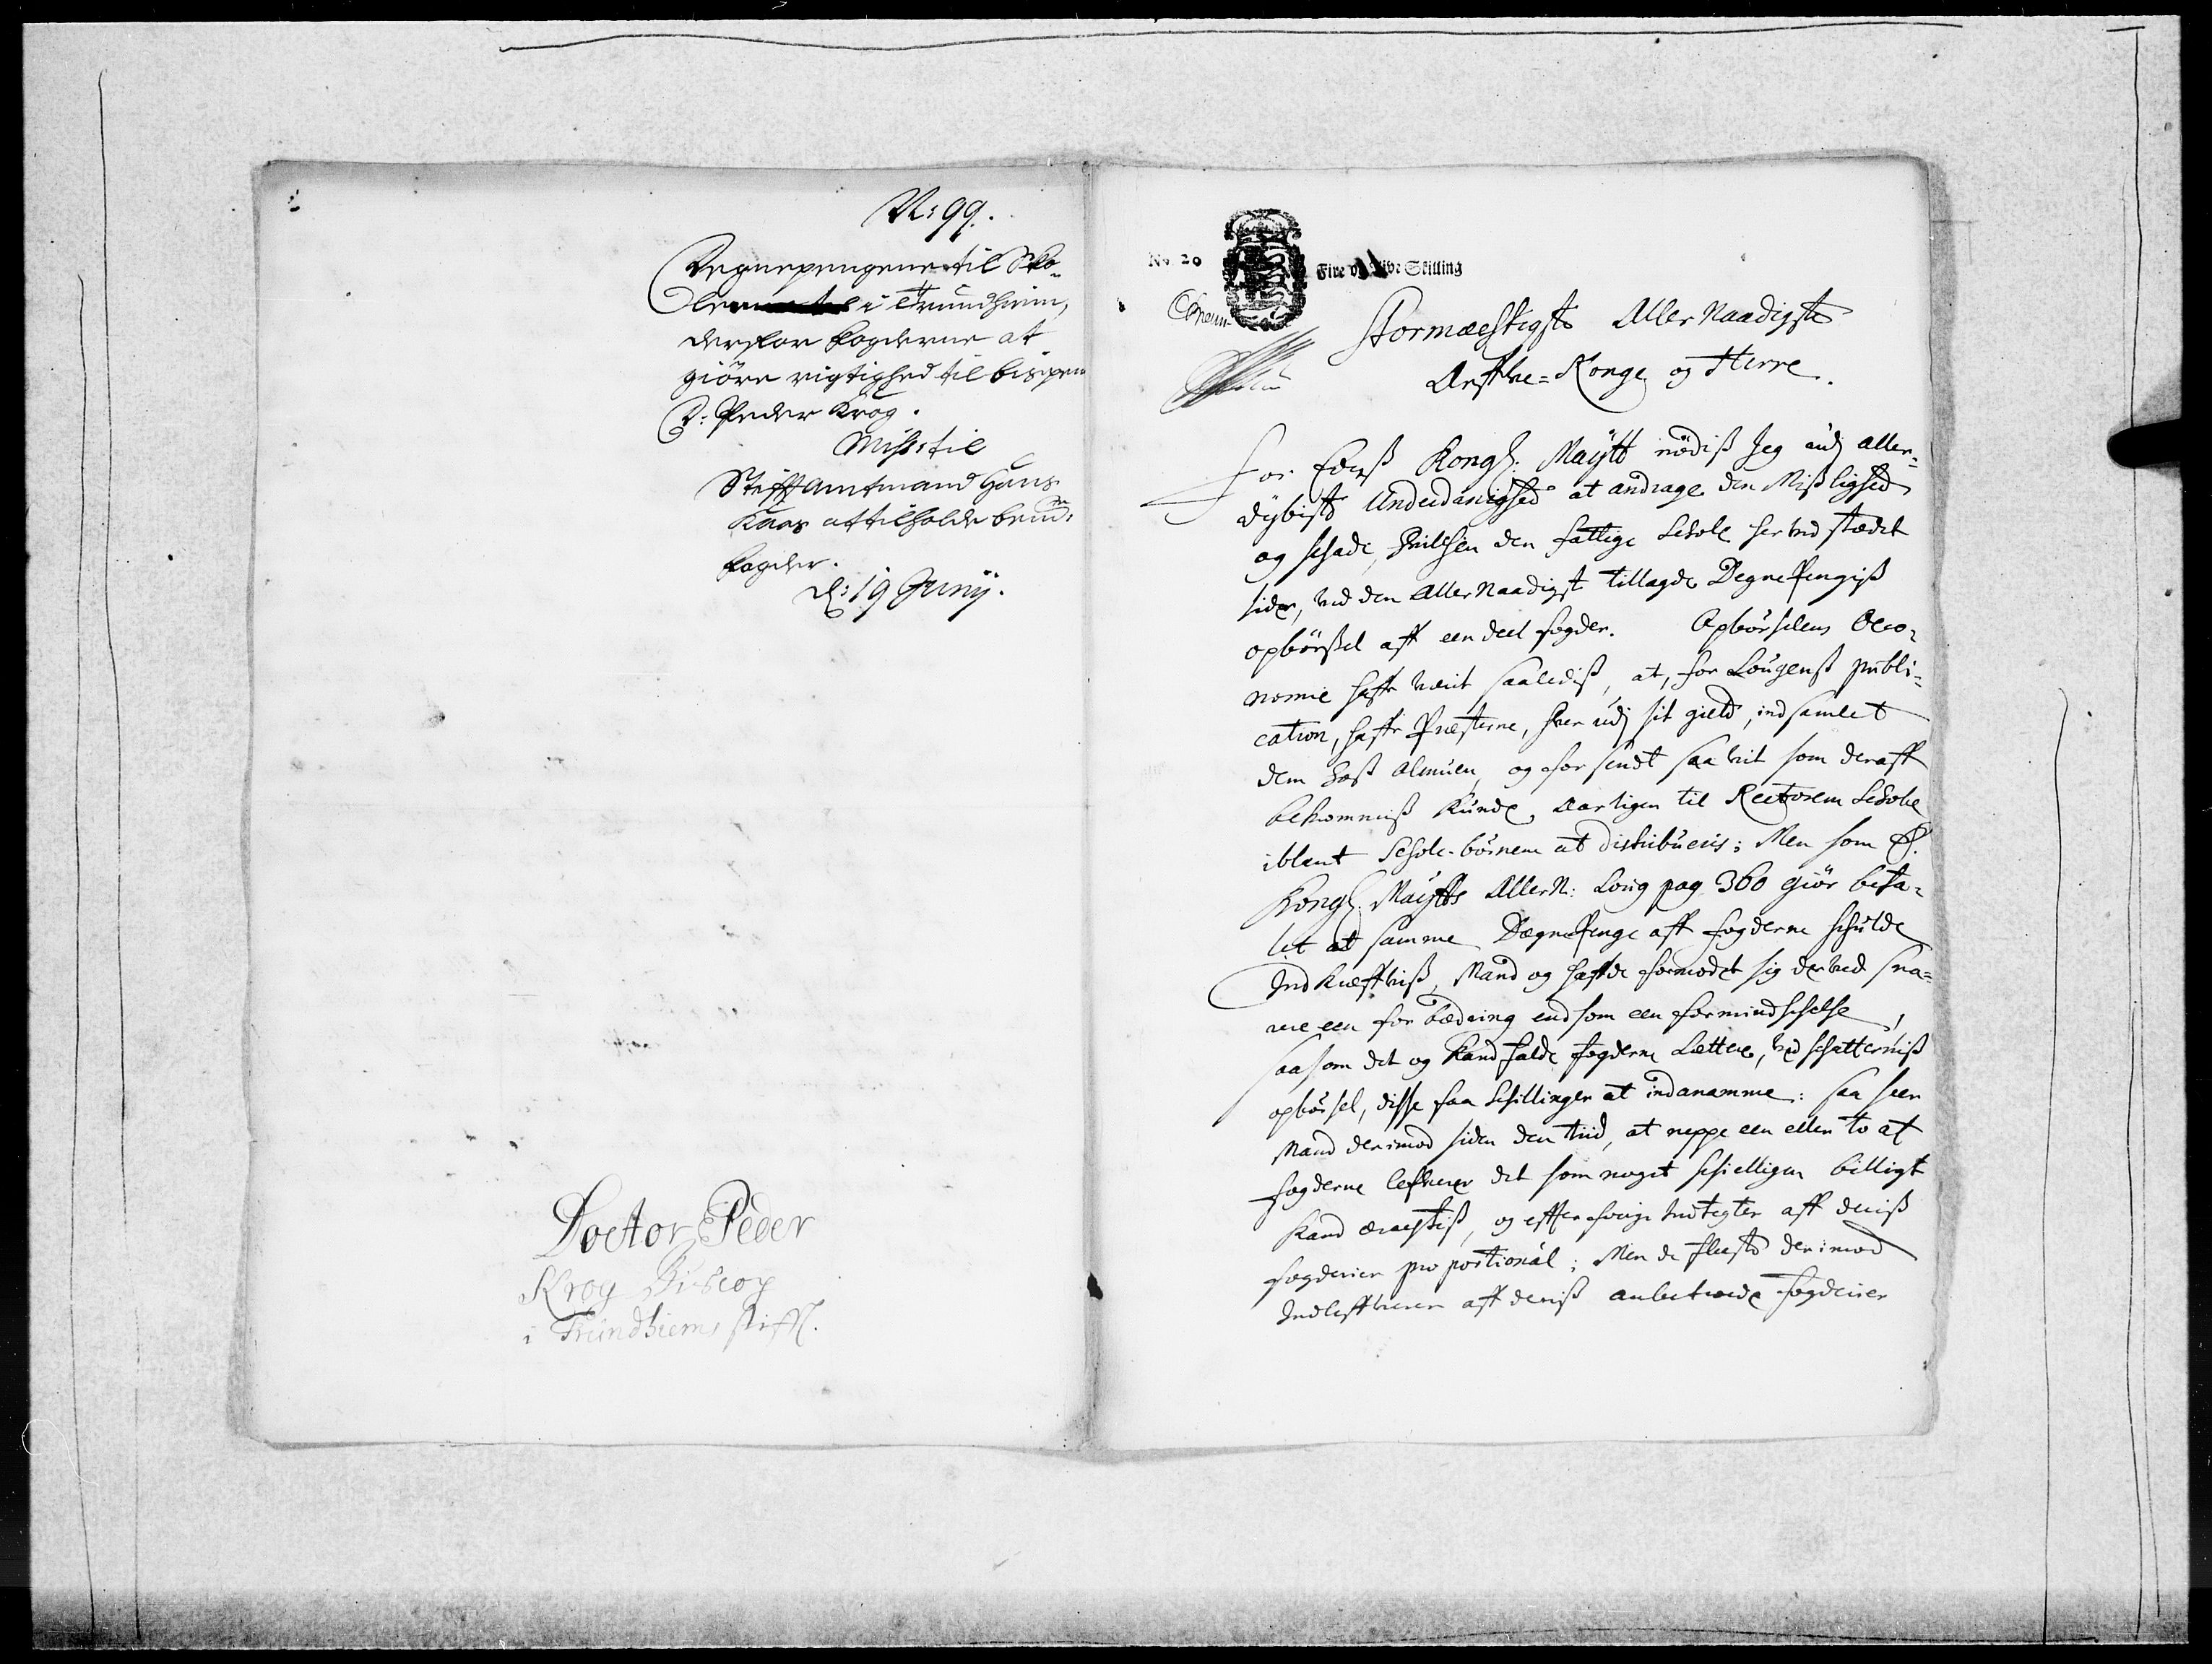 N: 99.
Degnepengene til Sko-
len i Trundhiem,
derfor fogderne at
giöre rigtighed til bispen
D: Peder Krog.
Miss: til
Stifft Amtmand Hans
Kaas at tilholde bemte:
fogder.
d: 19 Junij.
Doctor Peder
Krog Biscop
i Trundhiems stifft.
No. 20 Fire og Tive Skilling
Stormæcktigste Aller Naadigste
Arffve-Konge og Herre.
For Eders Kongl: Maÿtt nödis Jeg udj aller-
dÿbiste Underdanighed at andrage den Misslighed
og schade, hvilchen den fattige Schole her ved stædet
lider, ved den Aller Naadigst tillagde Degne Pengis
opbörsel aff een deel fogder. Opbörselens Oeco-
nomie haffr værit saaledis, at, for Lougens publi-
cation, haffr Præsterne, hver udj sit gield, indsamlet
dem hos Almuen, og forsendt saa vit som deraff
bekommis kunde, Aarligen til Rectorem Scholæ
iblant Schole-börnene at distribueris; Men som E.
Kongl: Maÿtts Aller N: Loug pag 360 giör befa-
let at samme Degne Penge aff fogderne schulde
Indkræffvis, Mand og haffde formodet sig derved sna-
rere een forbædring end som een formindschelse,
saa som det og kand falde fogderne Lættere, ved schatternis
opbörsel, disse faa Schillinger at indanamme: saa seer
Mand derimod siden den tiid, at neppe een eller to af
fogderne lefverer det som noget schielligen billigt
kand eragtis, og effter forrige Indtegter aff deris
fogderier proportional; Men de fleeste derimod
Indleffverer aff deris anbetroede fogderier